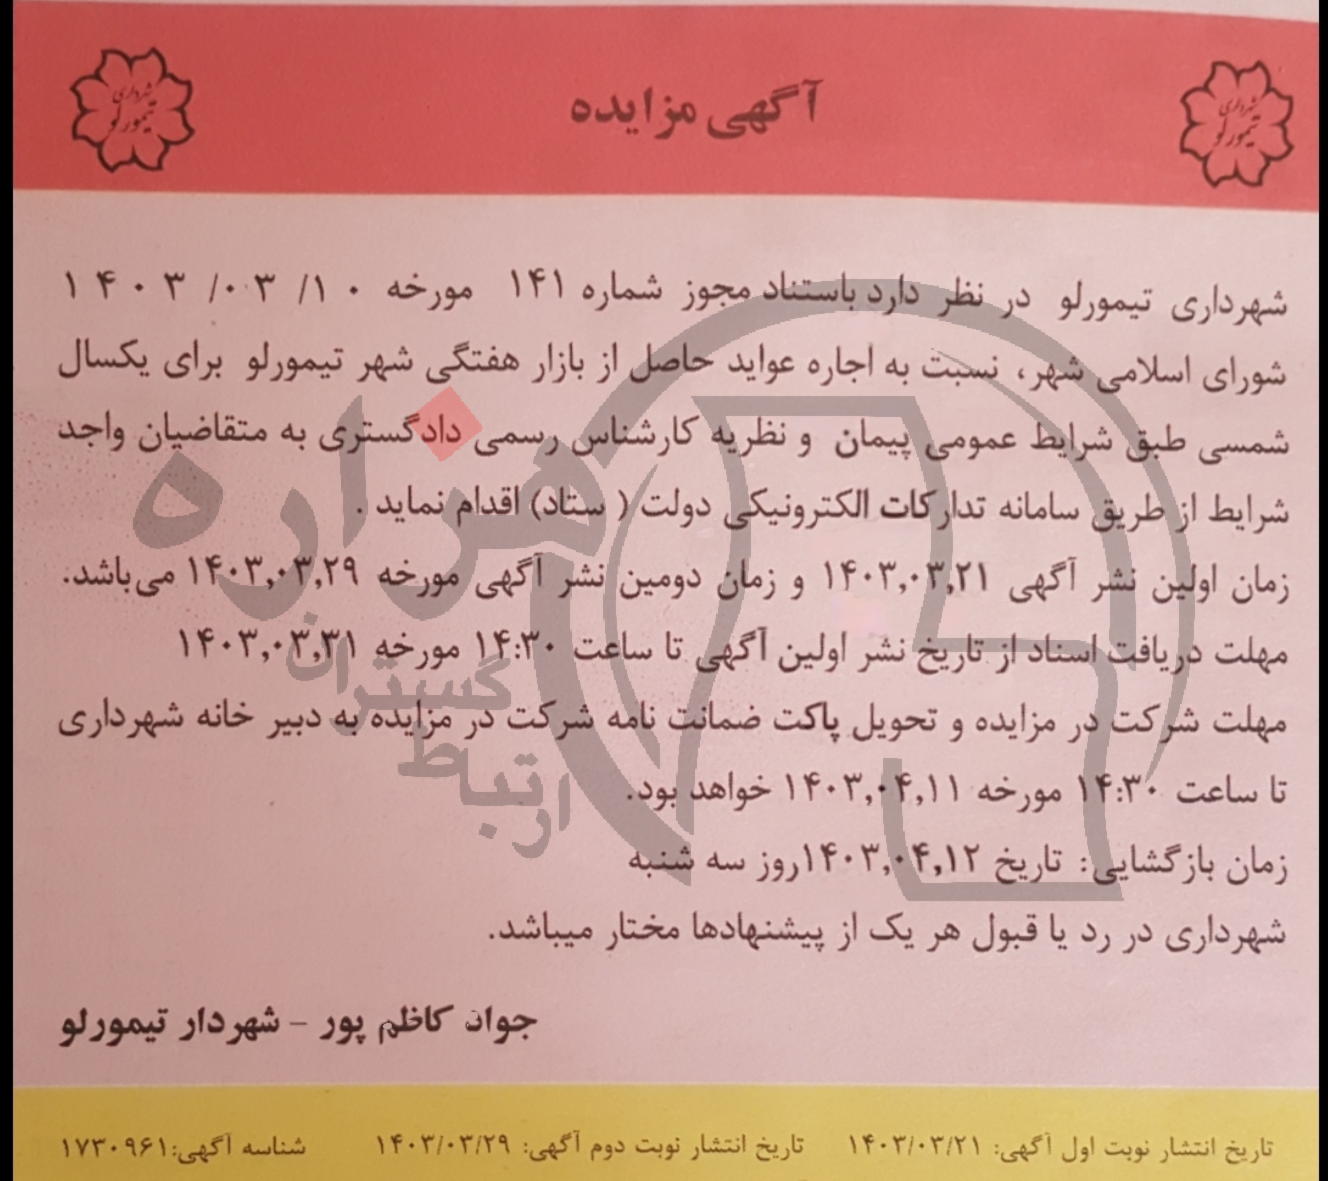 آگهی مزایده
شهرداری تیمورلو
شهرداری تیمورلو
شهرداری تیمورلو در نظر دارد باستناد مجوز شماره ۱۴۱ مورخه ۱۴۰۳/۰۳/۱۰
شورای اسلامی شهر، نسبت به اجاره عواید حاصل از بازار هفتگی شهر تیمورلو برای یکسال
شمسی طبق شرایط عمومی پیمان و نظریه کارشناس رسمی دادگستری به متقاضیان واجد
شرایط از طریق سامانه تدارکات الکترونیکی دولت ( ستاد) اقدام نماید .
زمان اولین نشر آگهی ۱۴۰۳,۰۳,۲۱ و زمان دومین نشر آگهی مورخه ۱۴۰۳,۰۳,۲۹ می‌باشد.
مهلت دریافت اسناد از تاریخ نشر اولین آگهی تا ساعت ۱۴:۳۰ مورخه ۱۴۰۳,۰۳,۳۱
مهلت شرکت در مزایده و تحویل پاکت ضمانت نامه شرکت در مزایده به دبیر خانه شهرداری
تا ساعت ۱۴:۳۰ مورخه ۱۴۰۳,۰۴,۱۱ خواهد بود.
زمان بازگشایی: تاریخ ۱۴۰۳,۰۴,۱۲روز سه شنبه
شهرداری در رد یا قبول هر یک از پیشنهادها مختار میباشد.
جواد کاظم پور – شهردار تیمورلو
تاریخ انتشار نوبت اول آگهی: ۱۴۰۳/۰۳/۲۱ تاریخ انتشار نوبت دوم آگهی: ۱۴۰۳/۰۳/۲۹ شناسه آگهی:۱۷۳۰۹۶۱
هزاره
ارتباط گستران